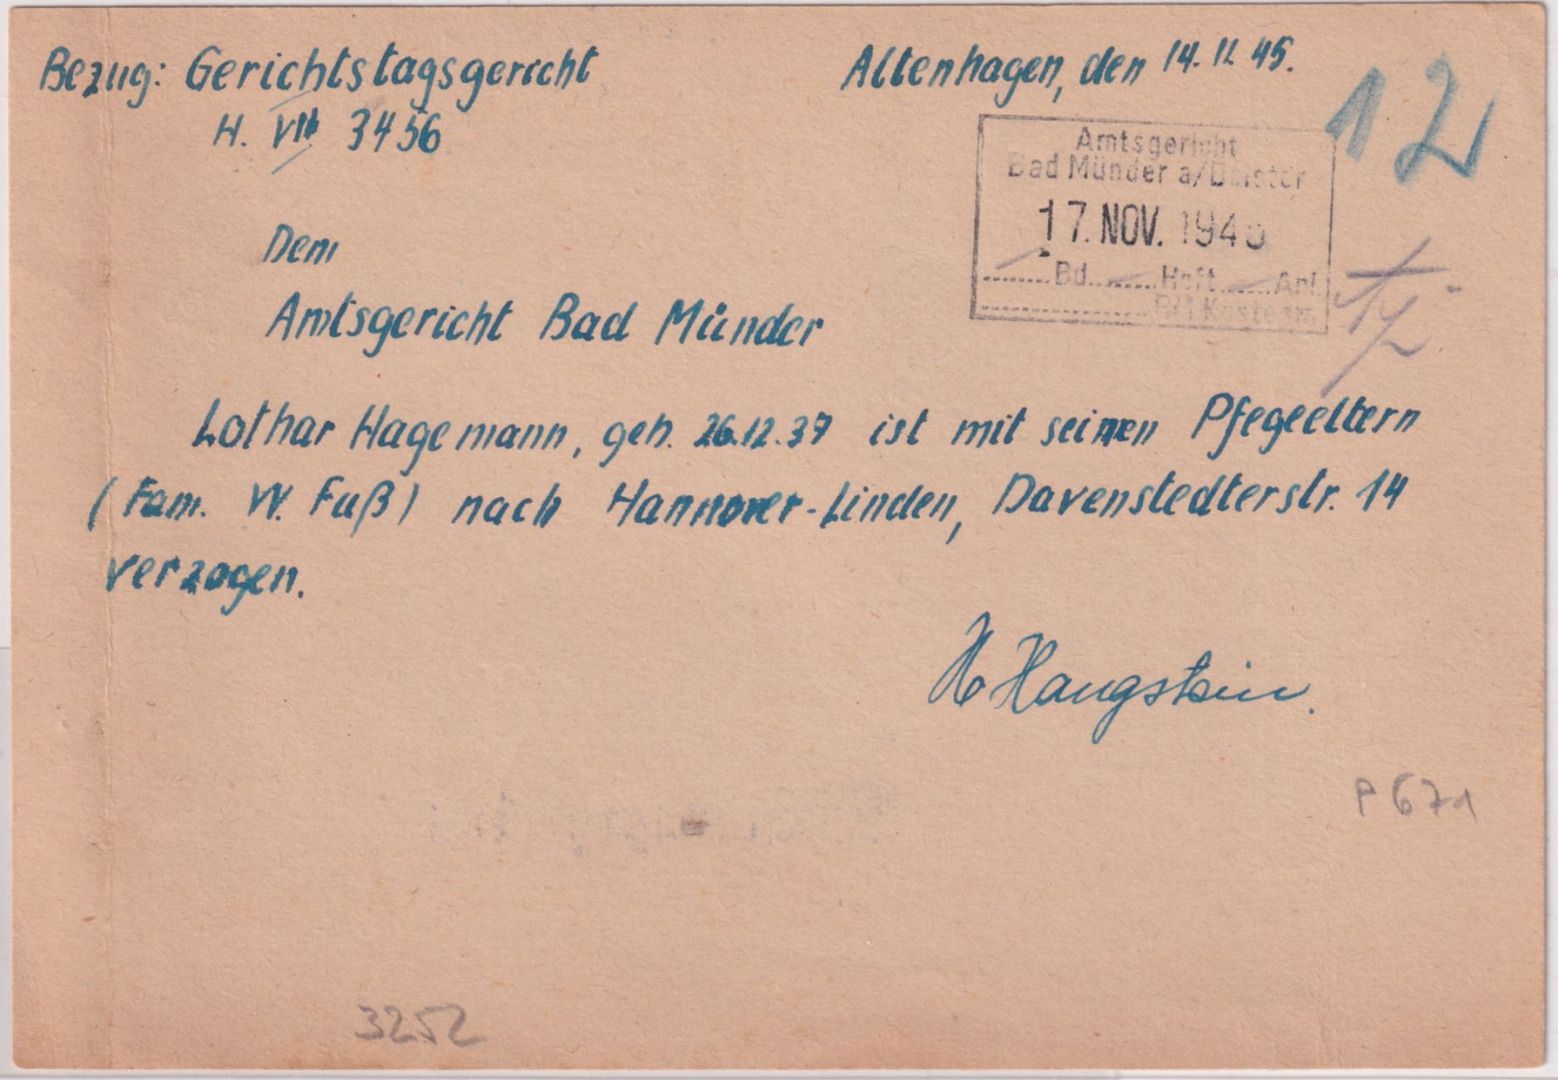 Bezug: Gerichtstagsgericht
Altenhagen, den 14.11.45.
12
H. VIIb 3456
Amtsgericht
Bad Münder a/Deister
17. NOV. 1945
Bd. Heft Anl.
Dem
Amtsgericht Bad Münder
Lothar Hagemann, geb. 26.12.37 ist mit seinen Pfegeeltern
(Fam. W. Fuß) nach Hannover-Linden, Davenstedterstr. 14
verzogen.
H Haugstein.
P 671
3252